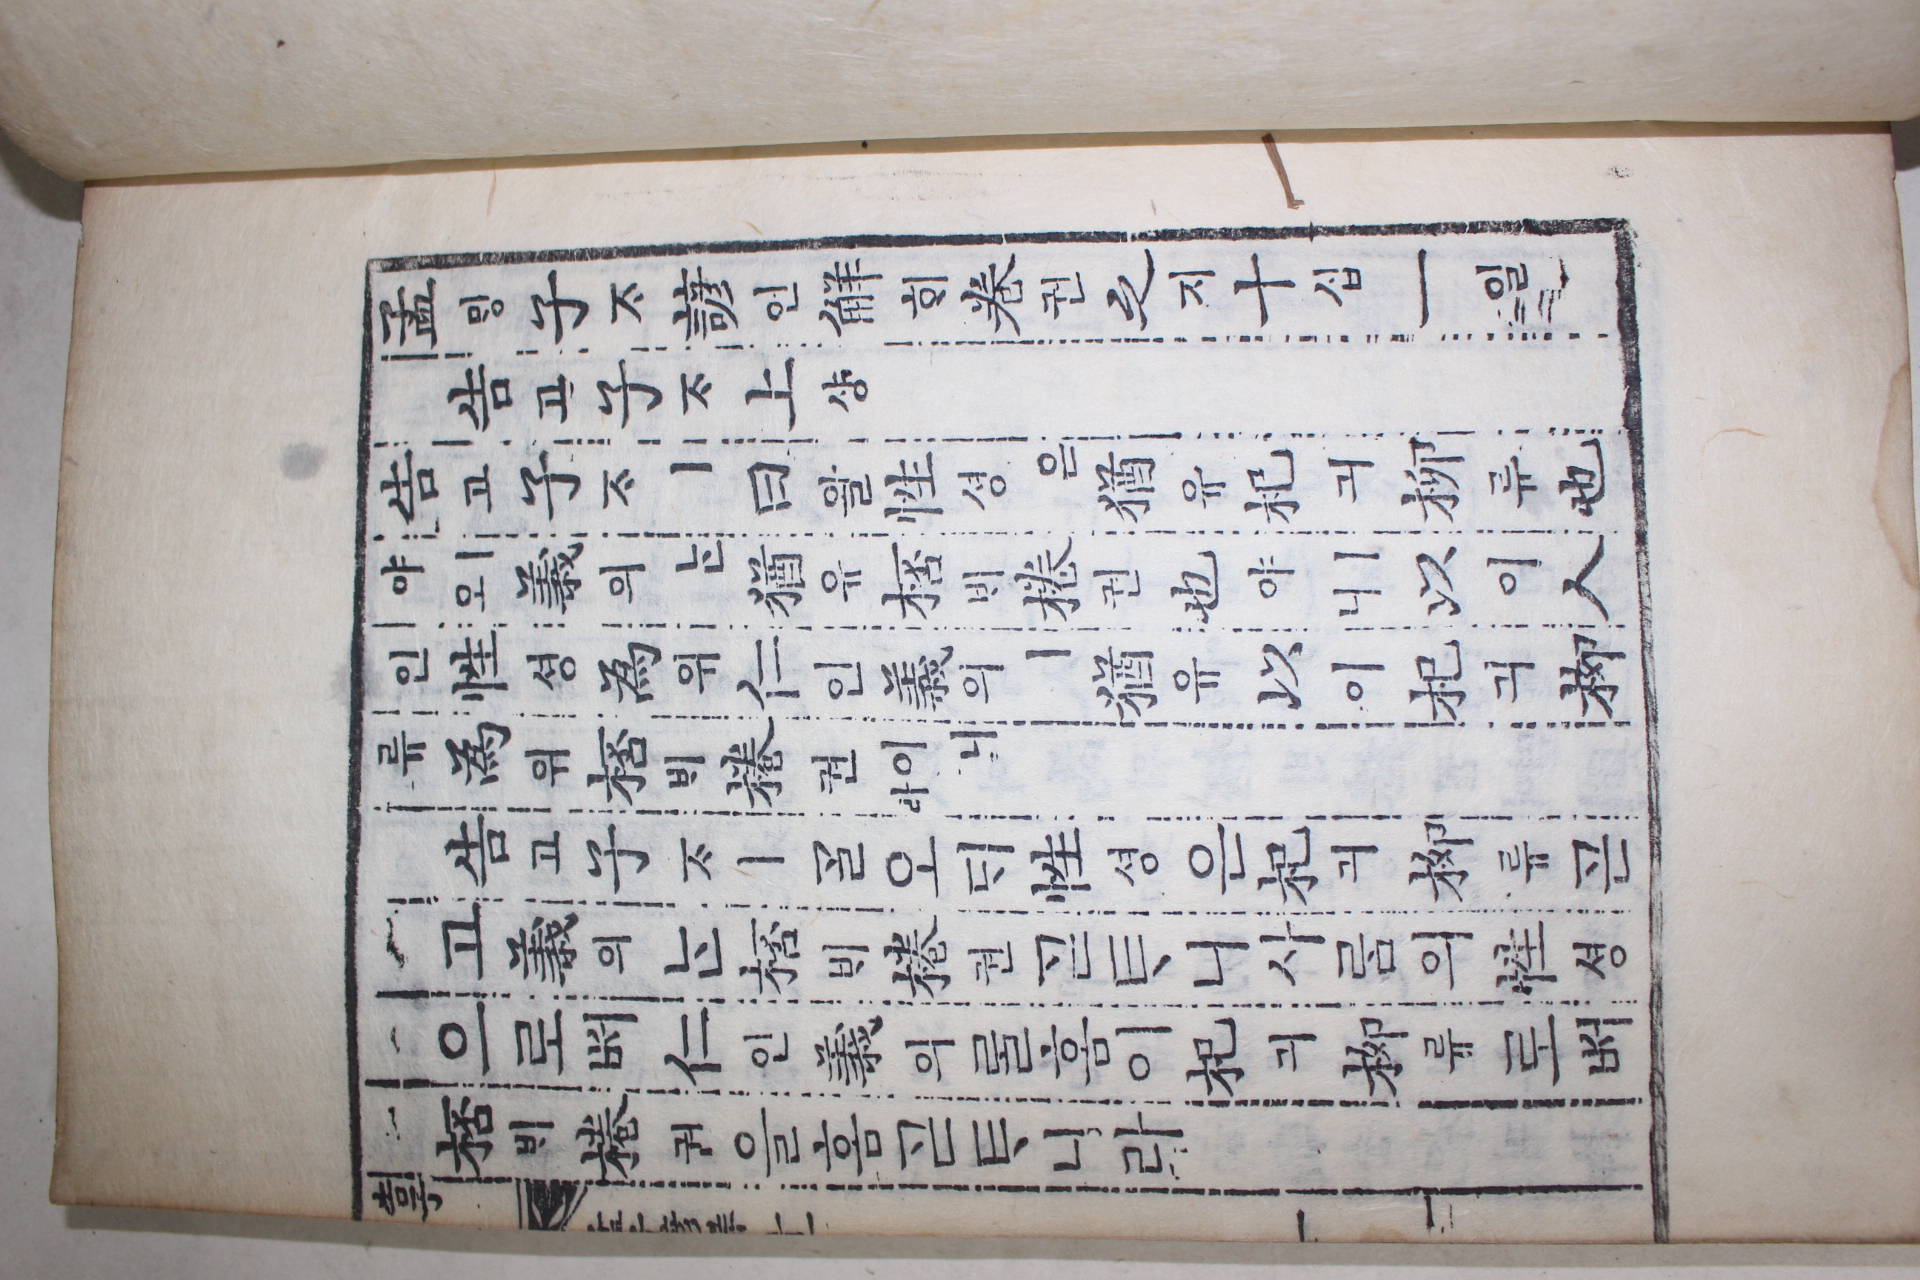 孟ᄆᆡᆼ子ᄌᆞ諺언解ᄒᆡ卷권之지十십一일
告고子ᄌᆞ上샹
告고子ᄌᆞㅣ曰왈性셩은猶유杞긔柳류也
야ㅣ오義의ᄂᆞᆫ猶유桮ᄇᆡ棬권也야ㅣ니以이人
인性셩爲위仁인義의ㅣ猶유以이杞긔柳
류爲위桮ᄇᆡ棬권이니라
告고子ᄌᆞㅣᄀᆞᆯ오ᄃᆡ性셩은杞긔柳류ᄀᆞᆮ
고義의ᄂᆞᆫ桮ᄇᆡ棬권ᄀᆞᆮᄐᆞ니사ᄅᆞᆷ의性셩
으로ᄡᅥ仁인義의ᄅᆞᆯᄒᆞᆷ이杞긔柳류로ᄡᅥ
桮ᄇᆡ棬권을ᄒᆞᆷᄀᆞᆮᄐᆞ니라